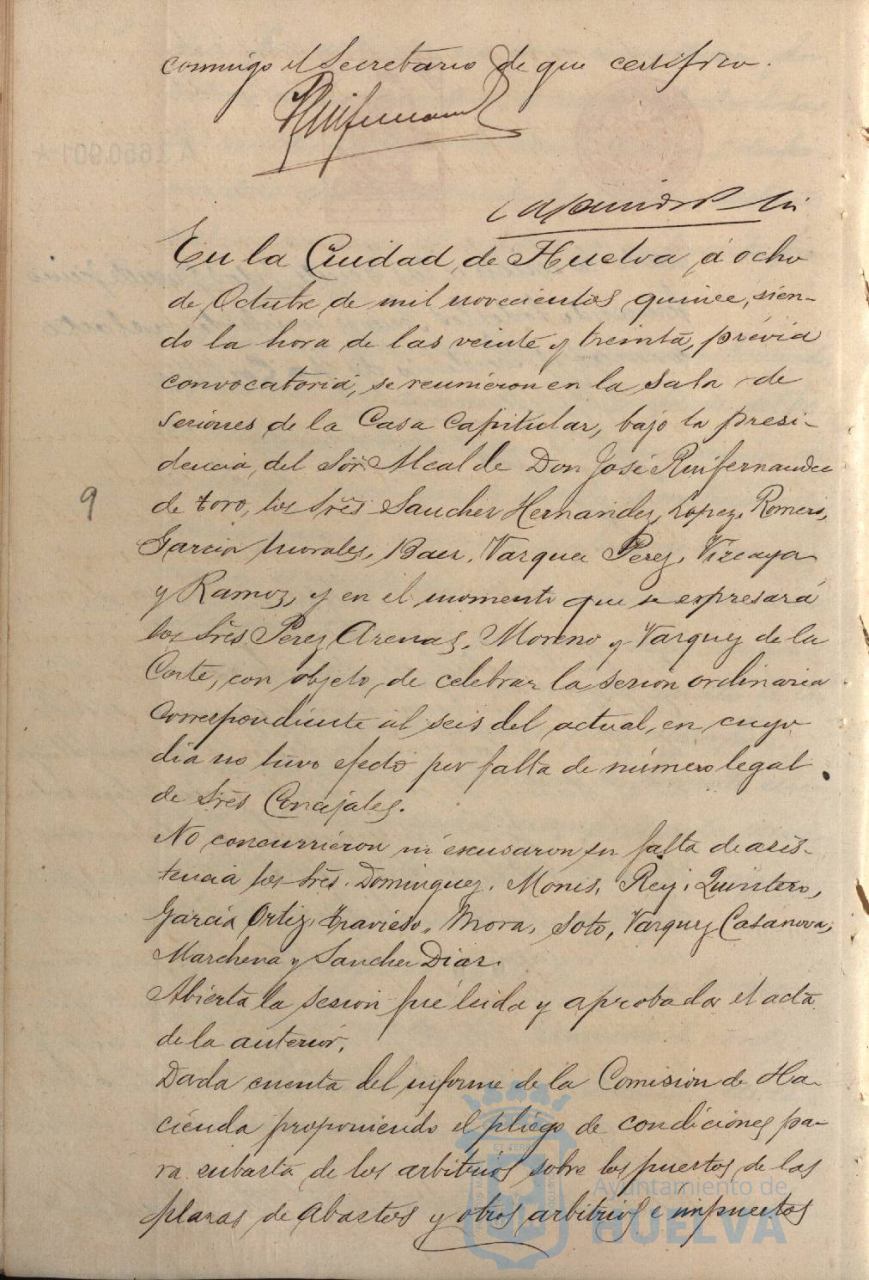 conmigo el Secretario de que certifico.
En la Ciudad de Huelva á ocho
de Octubre de mil novecientos quince, sien-
do la hora de las veinte y treinta, prévia
convocatoria, se reunieron en la sala de
sesiones de la Casa Capitular, bajo la presi-
dencia del Sor. Alcalde Don José Quifernandez
9
de toro, los Srēs Sanchez Hernandez, Lopez, Romero,
Garcia Morales, Baez, Vazquez Perez, Vizcaya
y Ramoz, y en el momento que se expresará
los Srēs Perez Arenas, Moreno y Vazquez de la
Corte, con objeto de celebrar la sesion ordinaria
correspondiente al seis del actual, en cuyo
dia no tuvo efecto por falta de número legal
de Srēs Concejales.
No concurrieron ni excusaron su falta de asis-
tencia los Srēs. Dominguez, Monis, Rey, Quintero,
García Ortiz, Travieso, Mora, Soto, Vazquez Casanova,
Marchena y Sanchez Diaz.
Abierta la sesion fué leida y aprobada el acta
de la anterior.
Dada cuenta del informe de la Comision de Ha-
cienda proponiendo el pliego de condiciones pa-
ra subasta de los arbitrios sobre los puestos de las
plazas de Abastos y otros arbitrios e impuestos
Ayuntamiento de
HUELVA